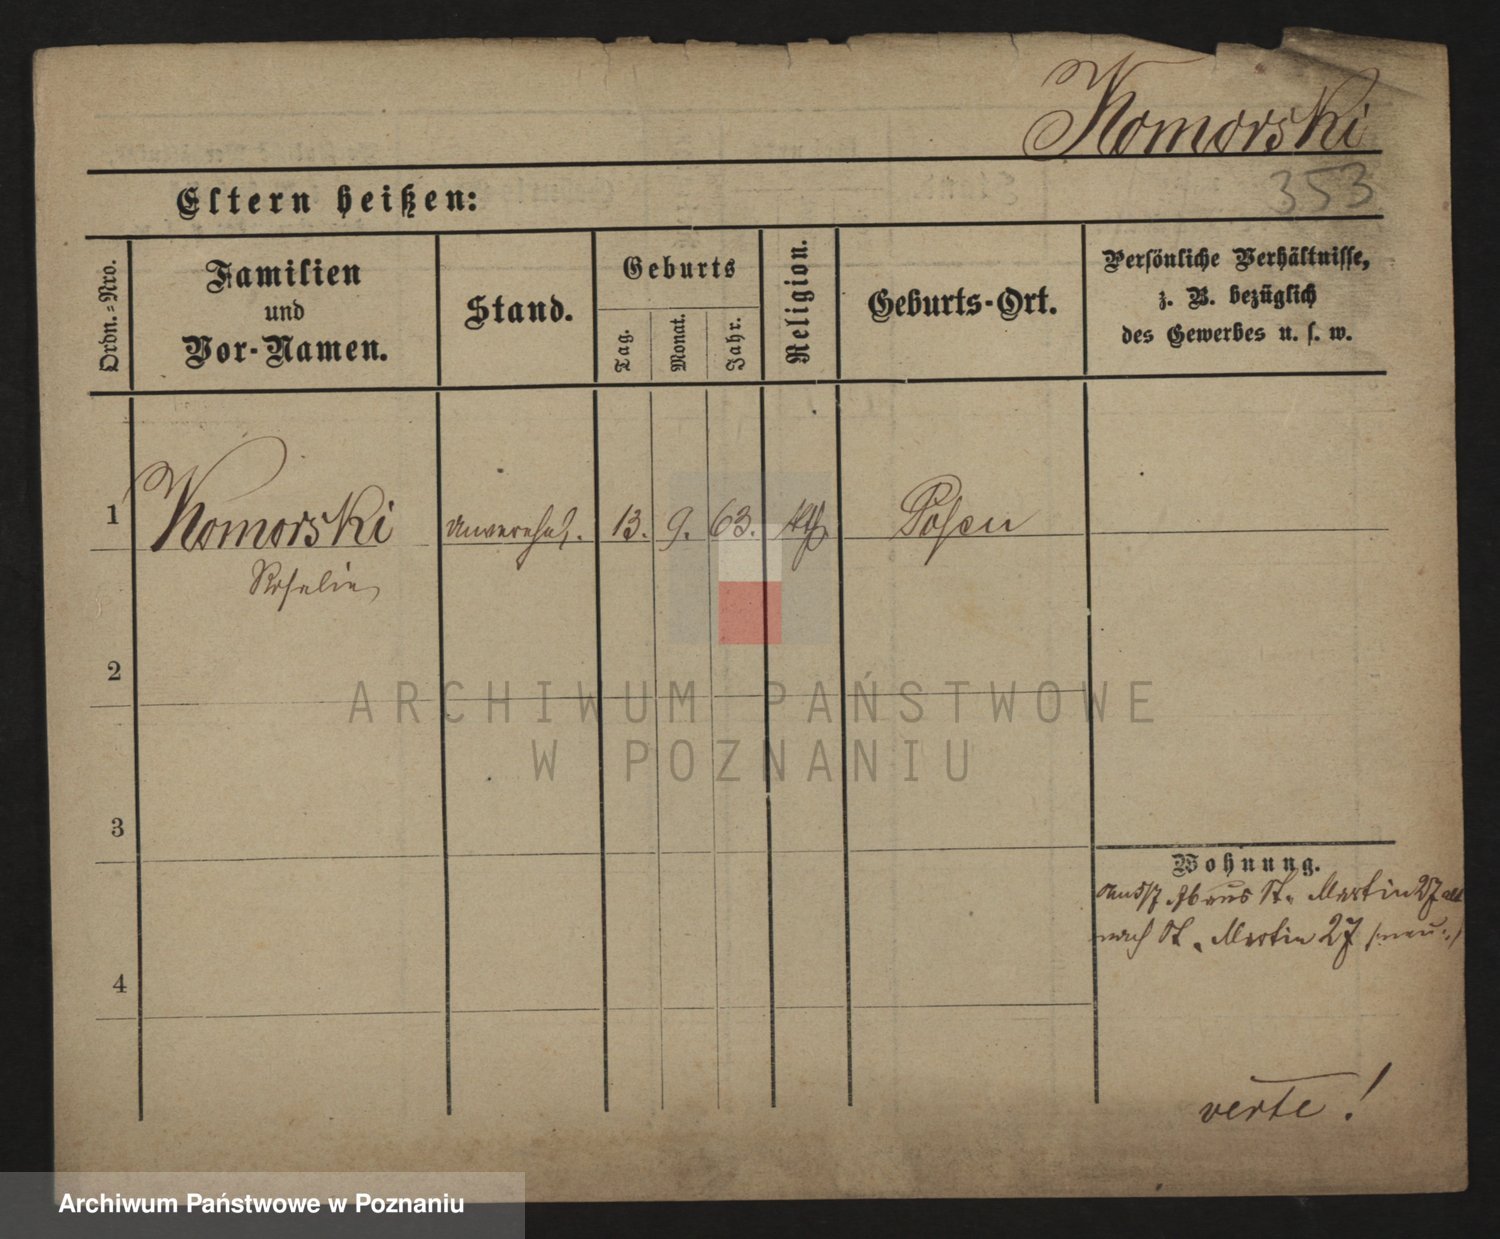 Komorski
353
Eltern heißen:
Ordn.-Nro.
Familien
und
Vor-Namen.
Stand.
Geburts
Tag.
Monat.
Jahr.
Religion.
Geburts-Ort.
Persönliche Verhältnisse,
z. B. bezüglich
des Gewerbes u. s. w.
1
Komorski
Rosalie
unverehel.
13.
9.
63.
kth
Posen
2
3
4
Wohnung.
St. Martin 27 alt
nach St. Martin 27 /:neu:/
verte!
ARCHIWUM PAŃSTWOWE
W POZNANIU
Archiwum Państwowe w Poznaniu